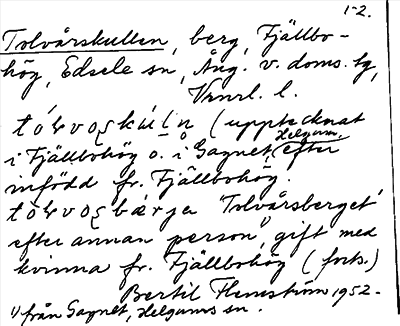 1-2.
Tolvårskullen, berg, Fjällbo-
hög, Edsele sn, Ång. v. doms. lg,
Vrnrl. l.
(upptecknat
i Fjällbohög o. i Gagnet, Helgum, efter
infödd fr. Fjällbohög.
'Tolvårsberget'
efter annan person¹⁾, gift med
kvinna fr. Fjällbohög (forts.)
Bertil Flemström 1952.
¹⁾ från Gagnet, Helgums sn.